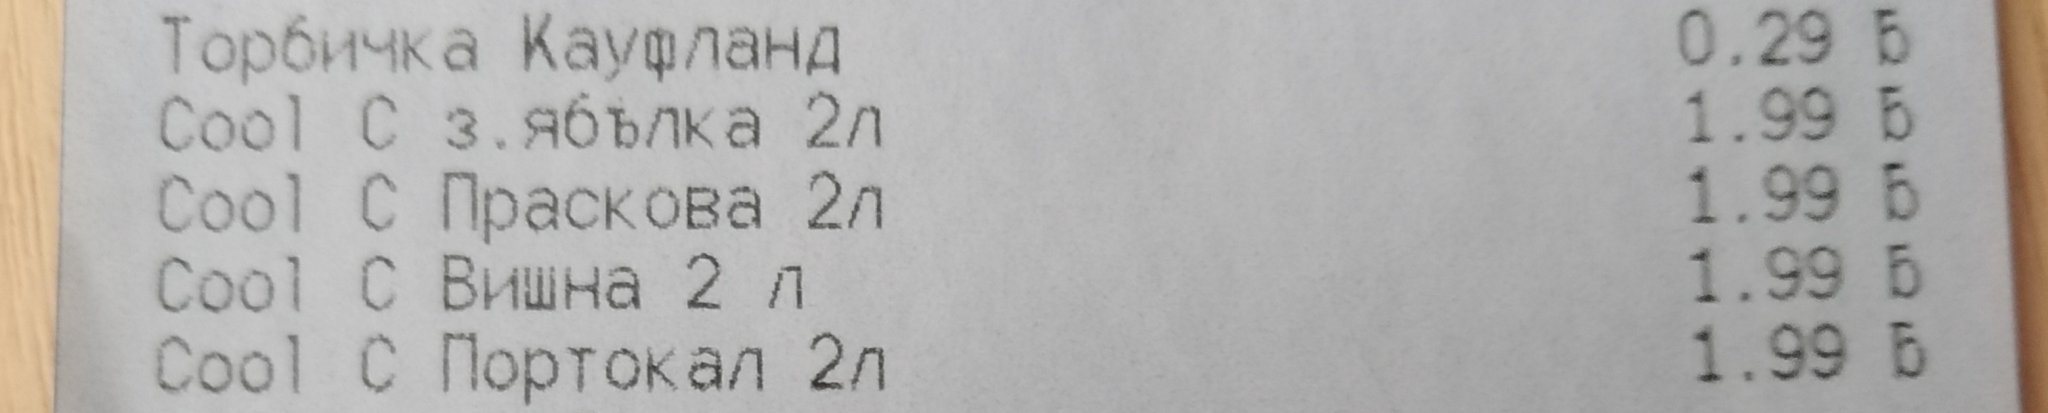 Торбичка Кауфланд 0.29 Б
Cool C з.ябълка 2л 1.99 Б
Cool C Праскова 2л 1.99 Б
Cool C Вишна 2 л 1.99 Б
Cool C Портокал 2л 1.99 Б